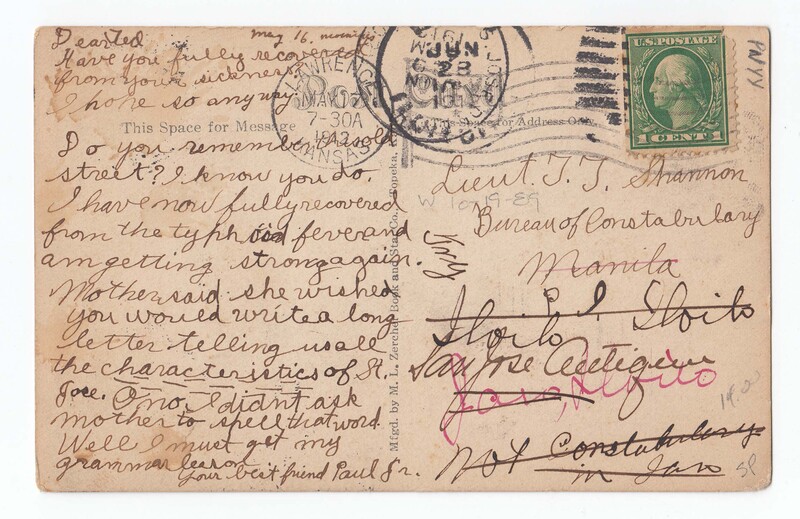 Dear Ted May 16. morning
Have you fully recovered
from your sickness
I hope so anyway
This Space for Message
Do you remember this old
street? I know you do.
I have now fully recovered
from the typhoid fever and
am getting strong again.
Mother said she wished
you would write a long
letter telling us all
the characteristics of St.
Joe. O no, I didnt ask
mother to spell that word
Well I must get my
grammar lesson
Your best friend Paul Jr.
Mfgd. by M. L. Zercher Book and Sta. Co., Topeka,
LAWRENCE
MAY 17
7-30A
1913
KANSAS
Post Card
JUN
28
This Space for Address Only.
U.S. POSTAGE
1 CENT 1
Lieut T. T. Shannon
W 10/19-E9
Bureau of Constabulary
Manila
P I
Iloilo Iloilo
San Jose Antique
Jaro, Iloilo
Not Constabulary
in Jaro
14.00
SP